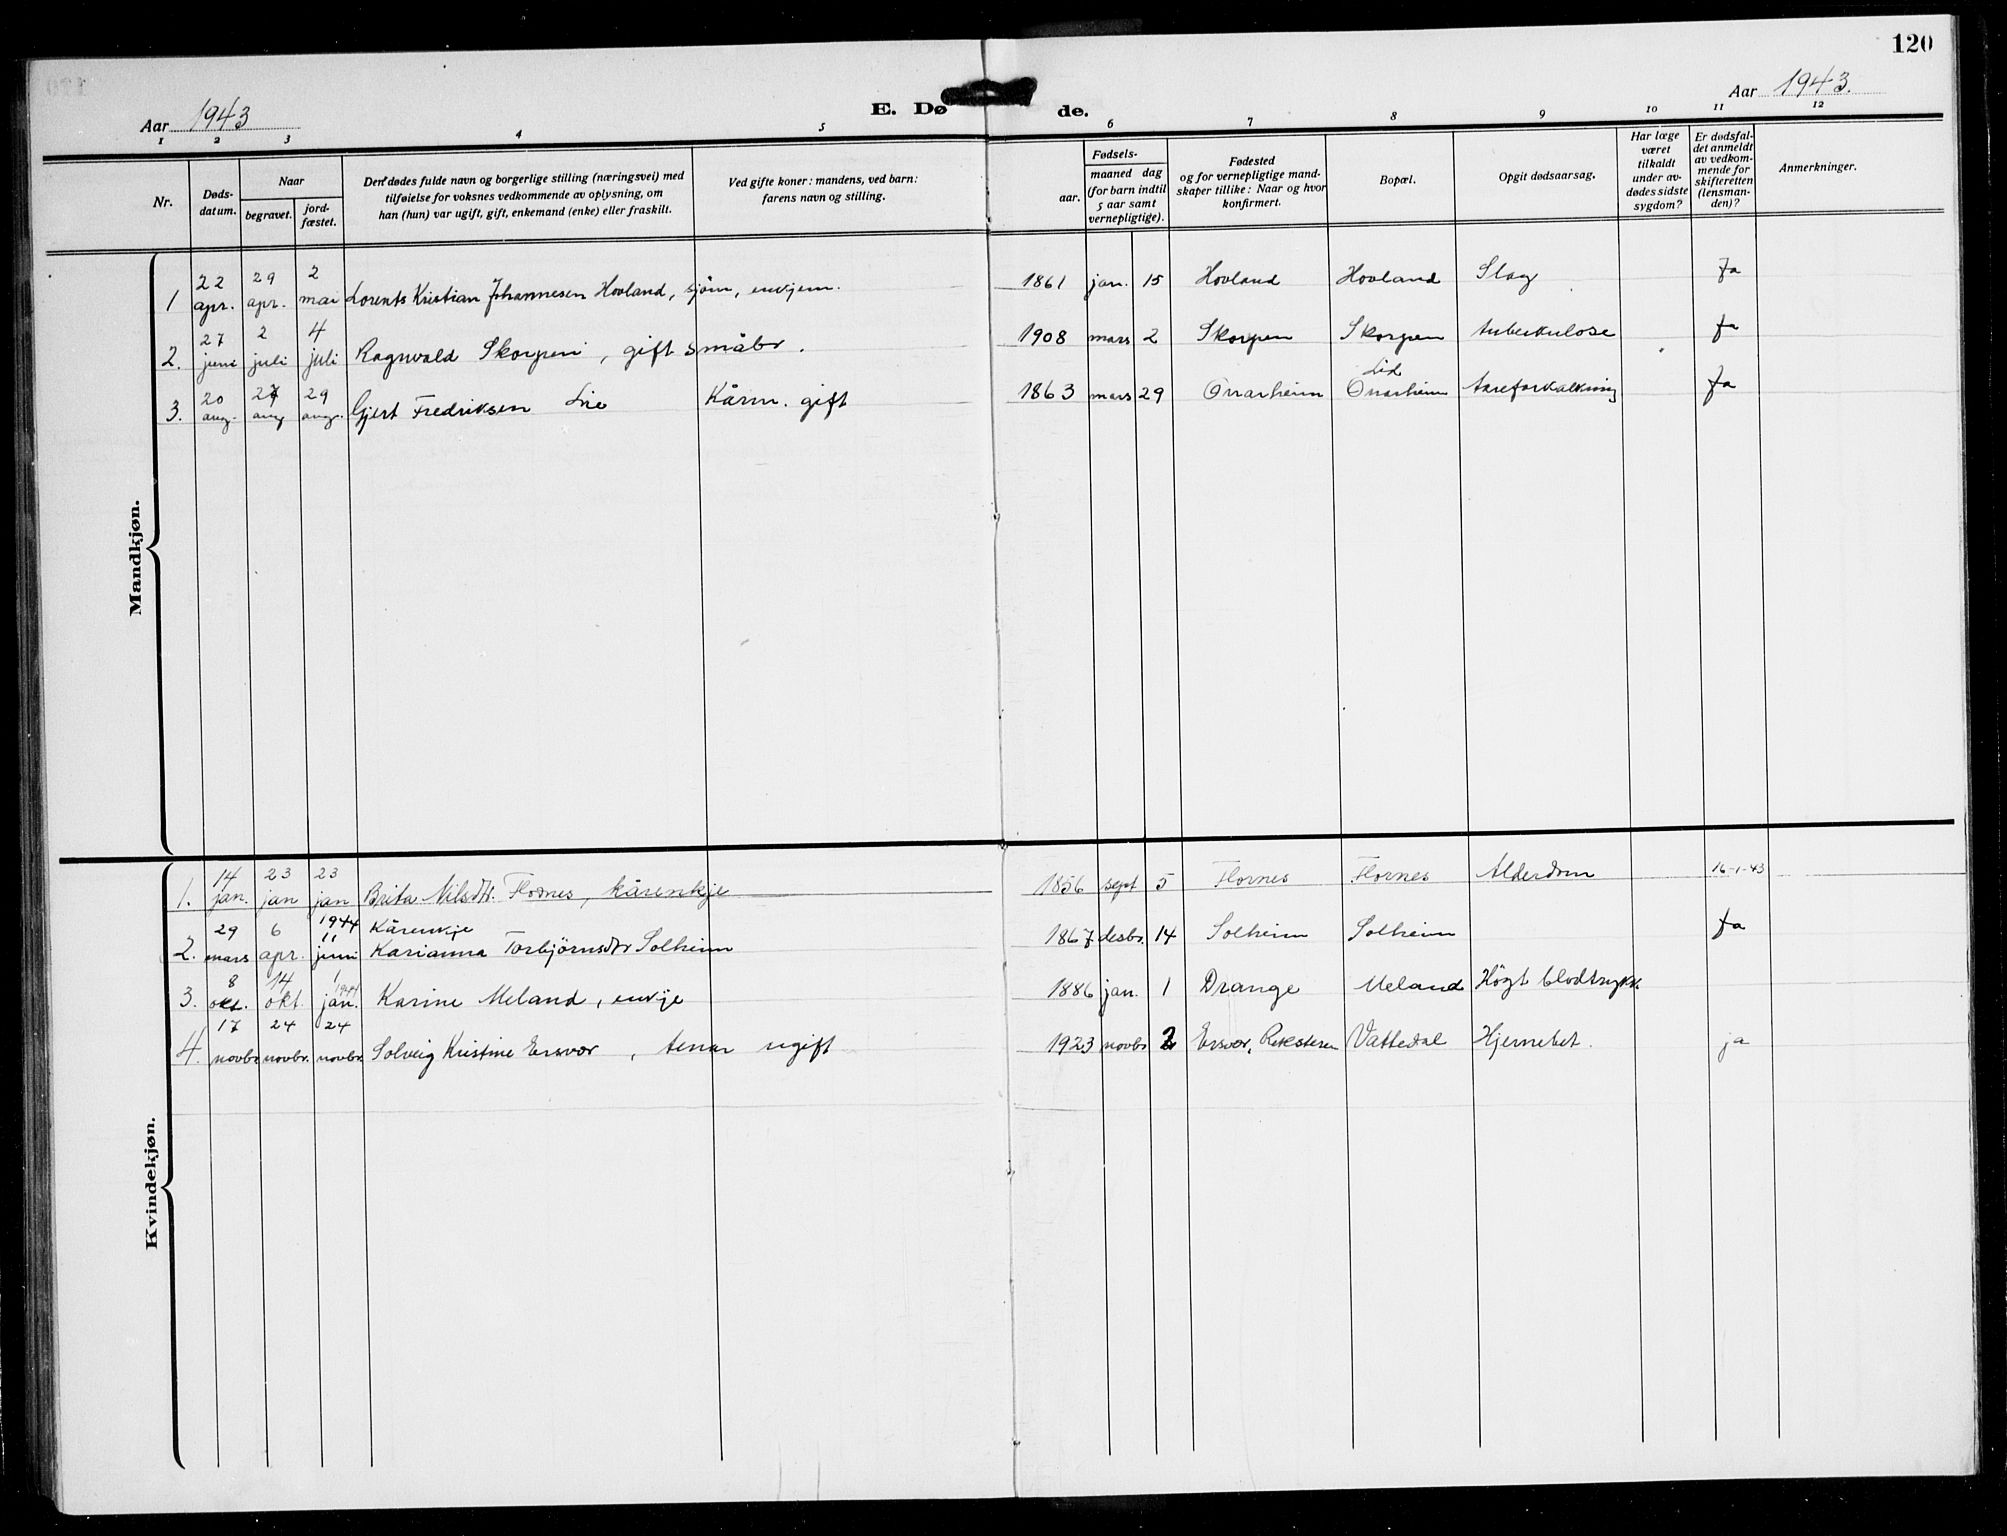 120
Aar 1943
E. Dø de.
Aar 1943.
1 2 3 4 5 6 7 8 9 10 11 12
Nr.
Døds-
datum.
Naar
begravet.
jord-
fæstet.
Den dødes fulde navn og borgerlige stilling (næringsvei) med
tilføielse for voksnes vedkommende av oplysning, om
han (hun) var ugift, gift, enkemand (enke) eller fraskilt.
Ved gifte koner: mandens, ved barn:
farens navn og stilling.
Fødsels-
aar.
maaned dag
(for barn indtil
5 aar samt
vernepligtige).
Fødested
og for vernepligtige mand-
skaper tillike: Naar og hvor
konfirmert.
Bopæl.
Opgit dødsaarsag.
Har læge
været
tilkaldt
under av-
dødes sidste
sygdom?
Er dødsfal-
det anmeldt
av vedkom-
mende for
skifteretten
(lensman-
den)?
Anmerkninger.
Mandkjøn.
22 29 2
1 apr. apr. mai Lorents Kristian Johannesen Hovland, sjøm, enkjem. 1861 jan. 15 Hovland Hovland Slag Ja
27 2 4
2. juni juli juli Ragnvald Skorpen, gift småbr. 1908 mars 2 Skorpen Skorpen tuberkulose Ja
20 29 Lid
3. aug. aug aug. Gjert Fredriksen Lie Kårm. gift 1863 mars 29 Onarheim Onarheim Aareforkalkning Ja
Kvindekjøn.
14 23 23
1. jan. jan jan Brita Nilsdtr. Flornes, kårenkje 1856 sept 5 Flornes Flornes Alderdom 16-1-43
29 6 1944 11 Kårenkje
2. mars apr. juni Karianna Torbjørnsdtr Solheim 1867 desbr. 14 Solheim Solheim Ja
8 14 1 1944
3. okt. okt. jan. Karine Meland, enkje 1886 jan. 1 Drange Meland Högt blodtrykk
17 24 24
4. novbr novbr. novbr. Solveig Kristine Ersvær, tenar ugift 1923 novbr 2 Ersvær, Reksteren Vattedal Hjernebet. ja